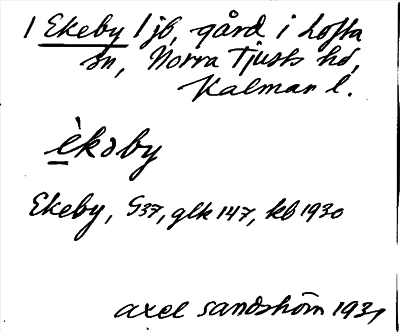 1 Ekeby 1 jb, gård i Lofta
sn, Norra Tjusts hd,
Kalmar l.
èkəby
Ekeby, G37, glk 147, kb 1930
axel sandström 1931